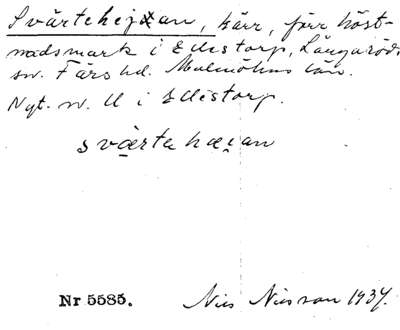 Svärtehejan, kärr, förr höst-
madsmark i Ellestorp, Långaröds
sn. Färs hd. Malmöhus län.
Nyt. n. U i Ellestorp.
svärtehæian
Nr 5585. Nils Nilsson 1937.